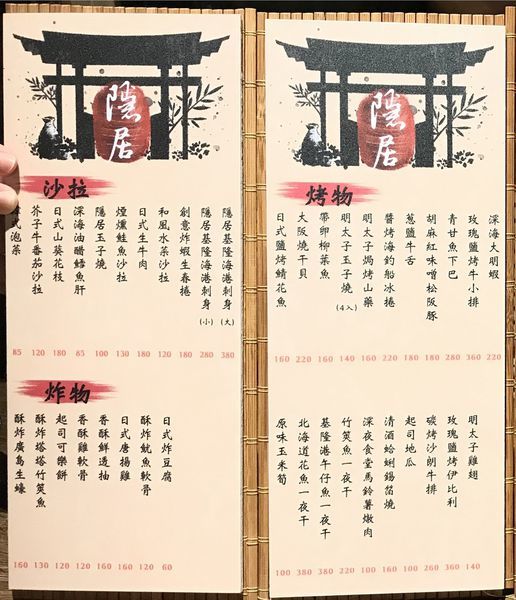 隱居
沙拉
隱居基隆海港刺身(大) 380
隱居基隆海港刺身(小) 280
創意炸蝦生春捲 180
和風水菜沙拉 120
日式生牛肉 180
煙燻鮭魚沙拉 130
隱居玉子燒 100
深海油嘟鱈魚肝 85
日式山葵花枝 180
芥子牛番茄沙拉 120
式泡菜 85
炸物
日式炸豆腐 60
酥炸魷魚軟骨 120
日式唐揚雞 160
香酥鮮透抽 160
香酥雞軟骨 120
起司可樂餅 120
酥炸塔塔竹筴魚 130
酥炸廣島生蠔 160
隱居
烤物
深海大明蝦 220
玫瑰鹽烤牛小排 360
青甘魚下巴 280
胡麻紅味噌松阪豚 180
蔥鹽牛舌 180
醬烤海釣船冰捲 220
明太子焗烤山藥 160
明太子玉子燒(4入) 140
帶卵柳葉魚 160
大阪燒干貝 220
日式鹽烤鯖花魚 160
明太子雞翅 140
玫瑰鹽烤伊比利 360
碳烤沙朗牛排 260
起司地瓜 100
清酒蛤蜊錫箔燒 160
深夜食堂馬鈴薯燉肉 100
竹筴魚一夜干 220
基隆港午仔魚一夜干 380
北海道花魚一夜干 380
原味玉米筍 100